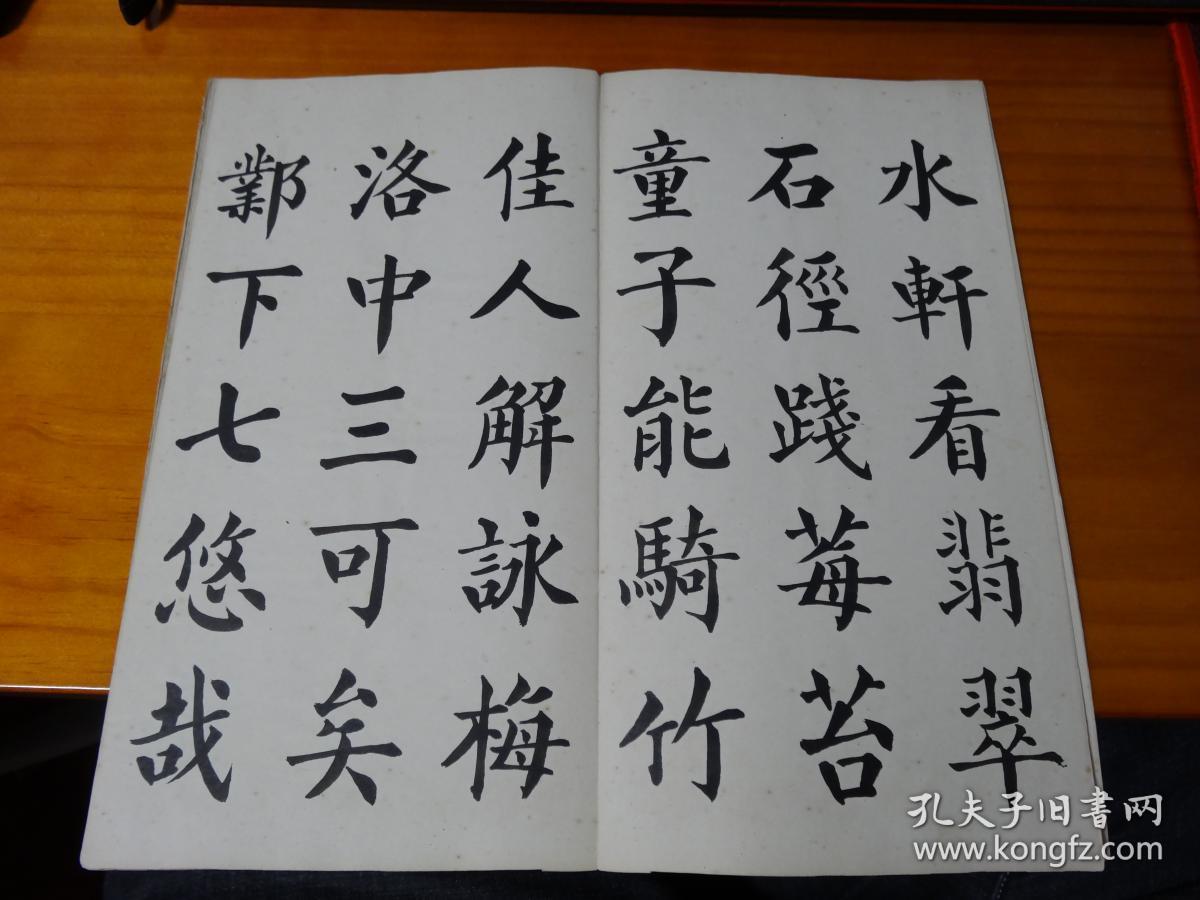 水軒看翡翠
石徑踐莓苔
童子能騎竹
佳人解詠梅
洛中三可矣
鄴下七悠哉
孔夫子旧書网
www.kongfz.com